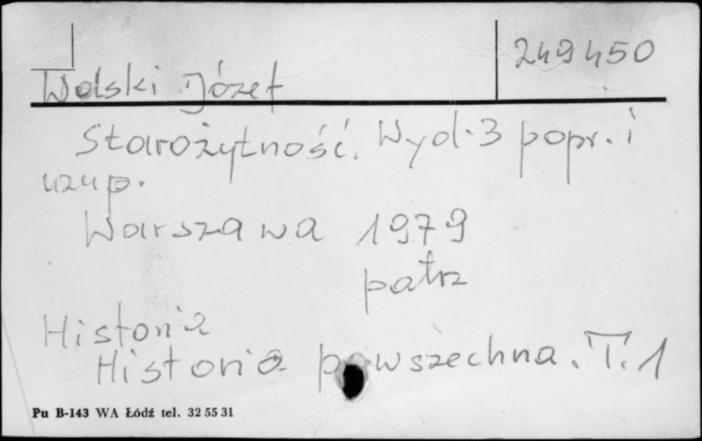 249450
Wolski Józef
Starożytność. Wyd. 3 popr. i
uzup.
Warszawa 1979
patrz
Historia
Historia powszechna. T. 1
Pu B-143 WA Łódź tel. 32 55 31